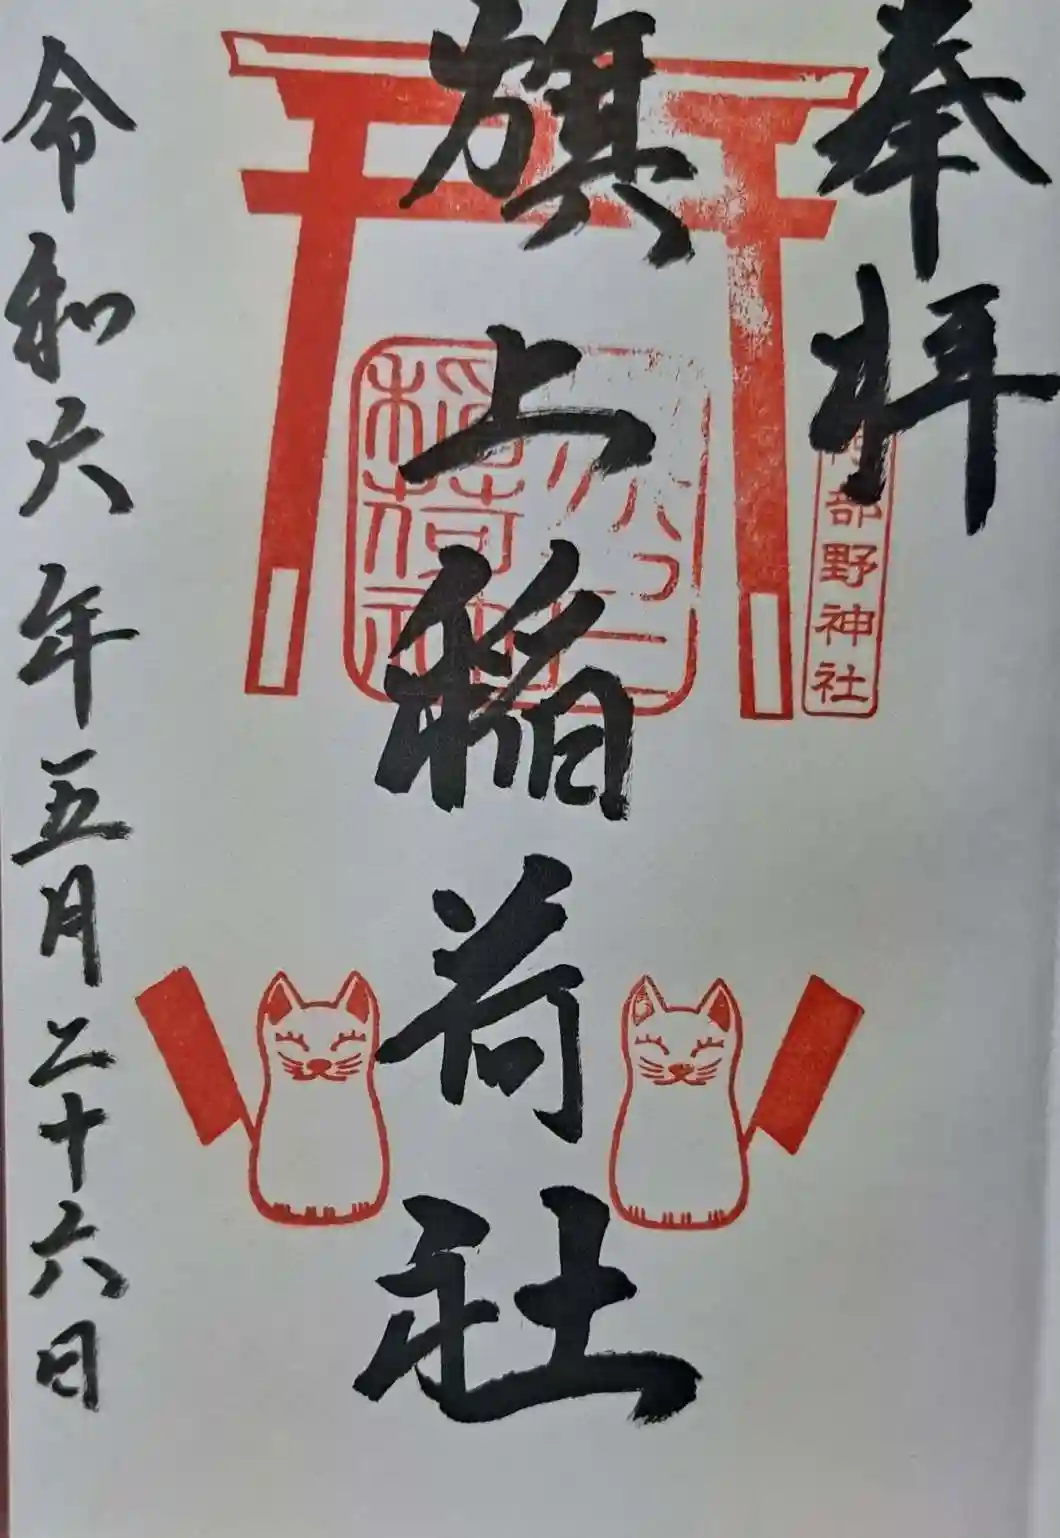 奉拝
阿部野神社
旗上稲荷社
稲荷神
令和六年五月二十六日